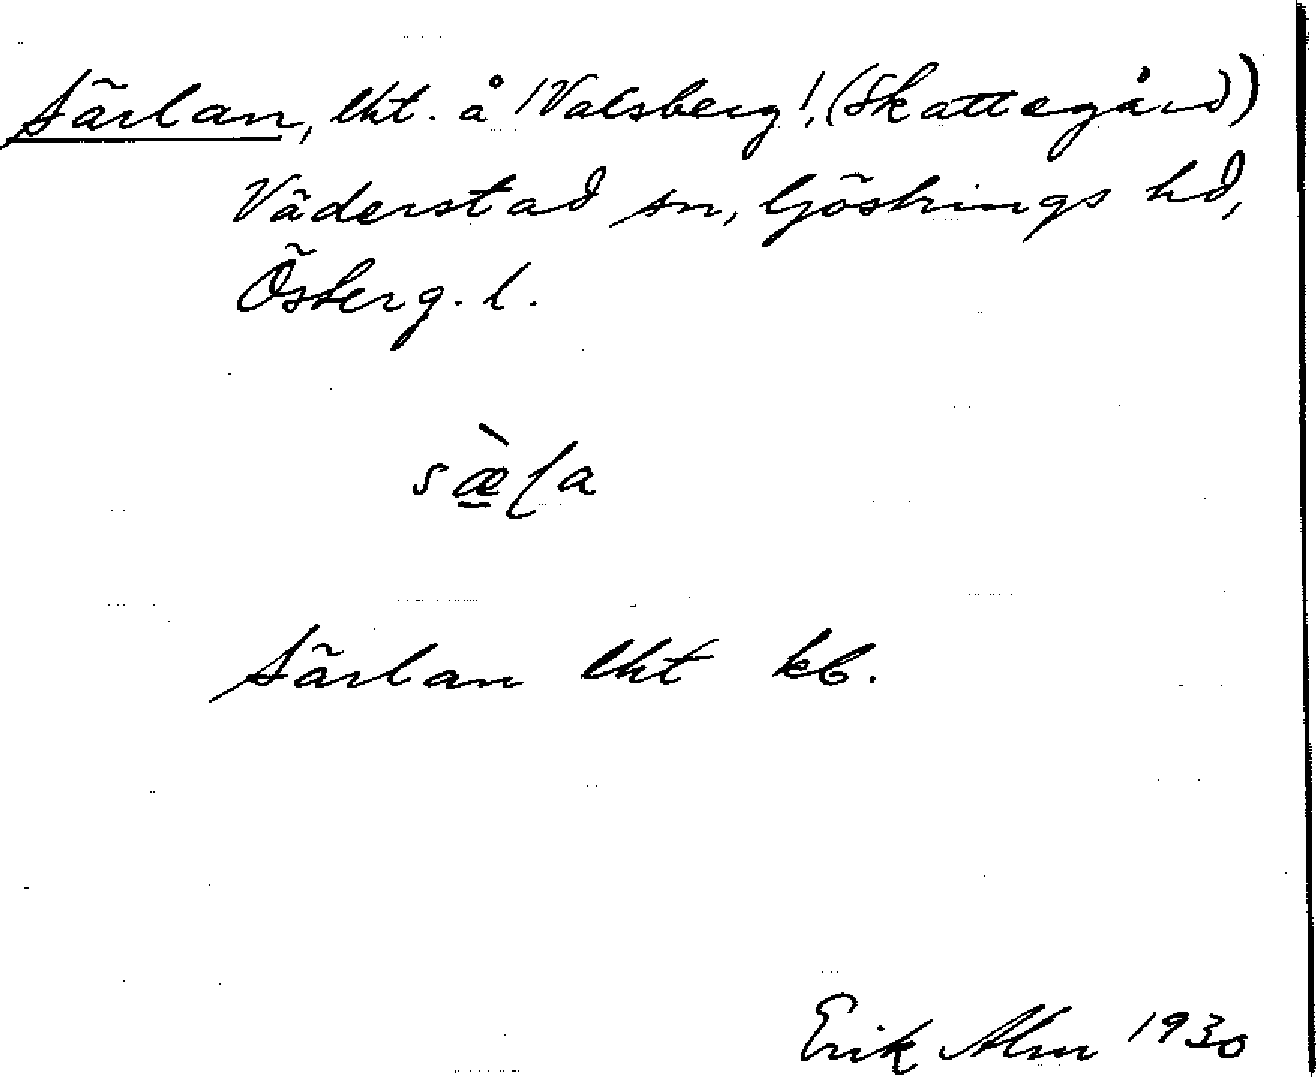 Särlan, lht. å Valsberg! (Skattegård)
Väderstad sn, Göstrings hd,
Österg. l.
sæ̀ɭa
Särlan lht kb.
Erik Alm 1930